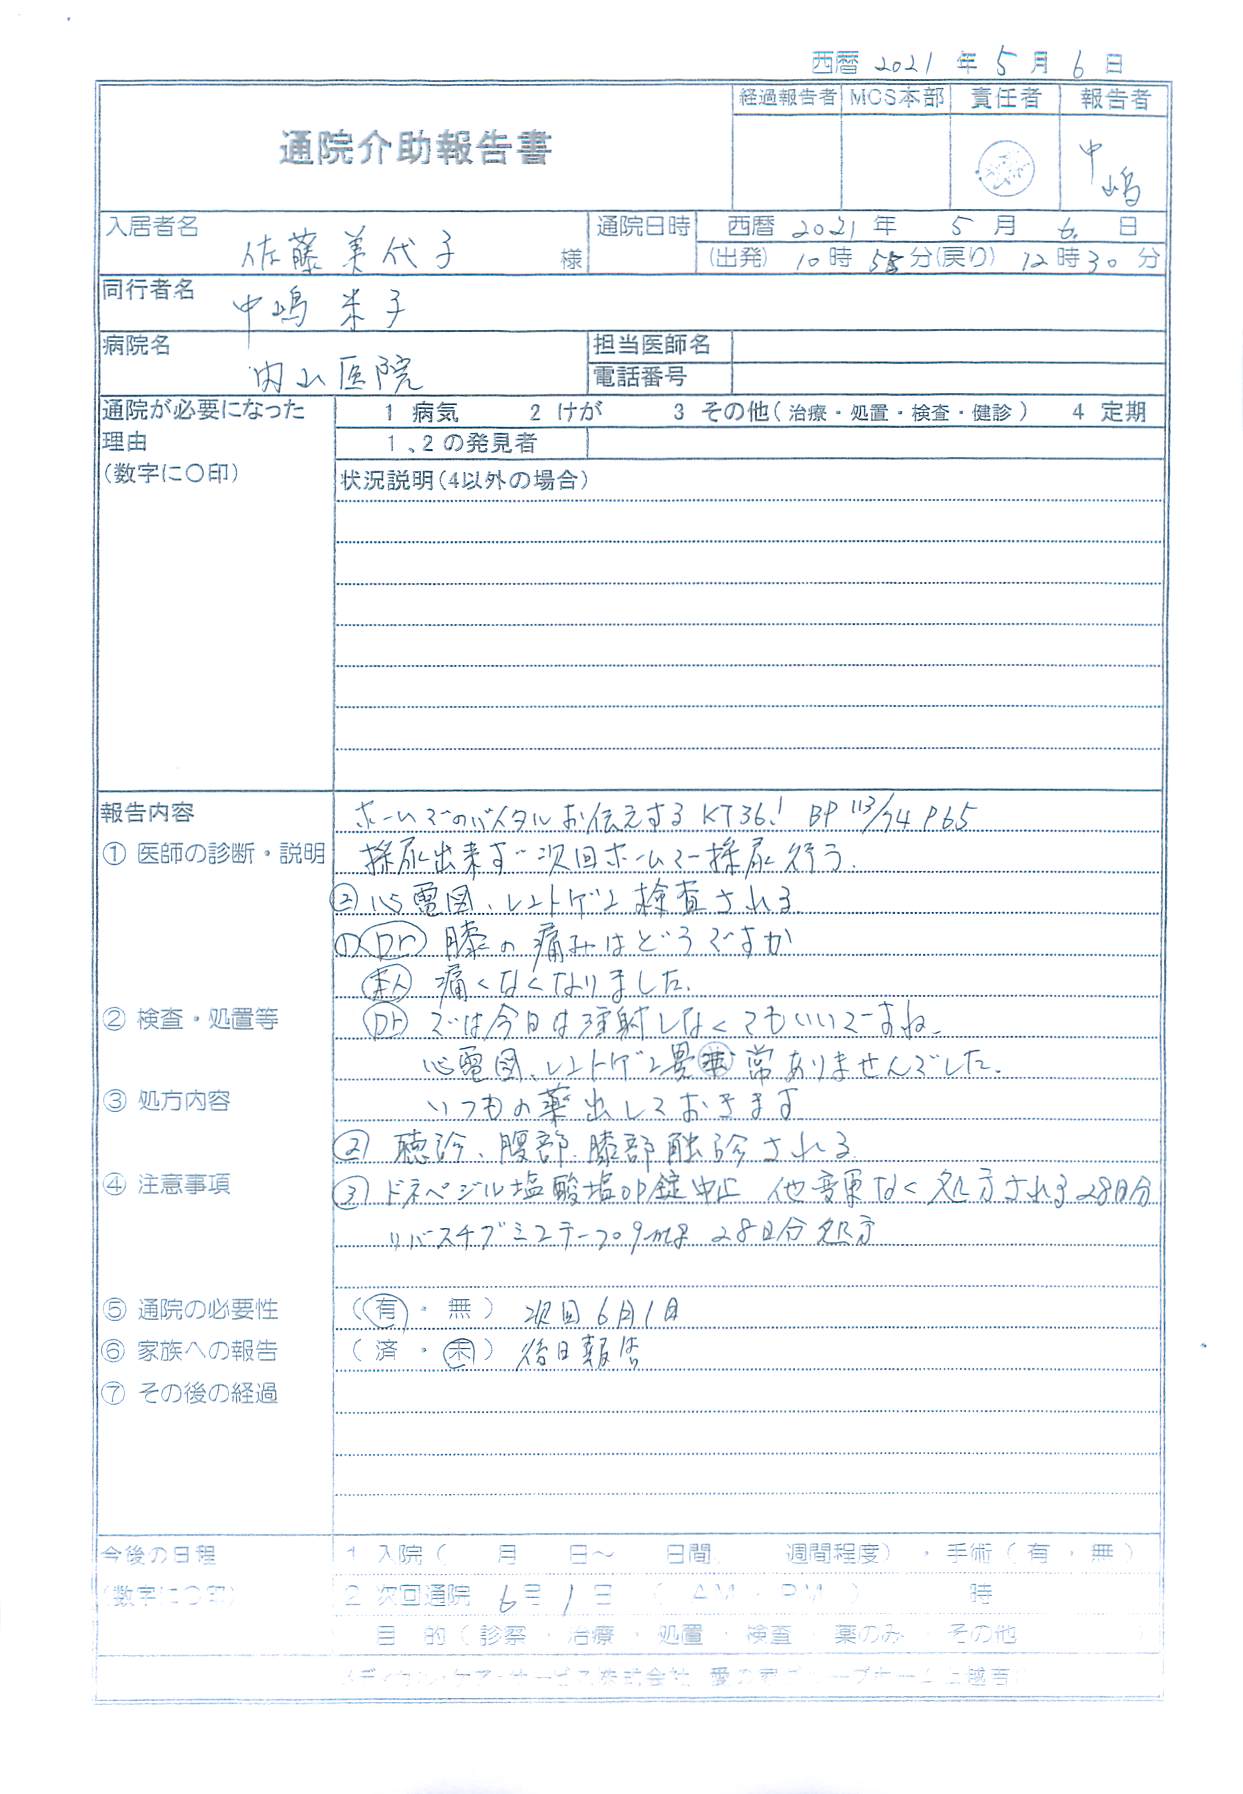 西暦 2021 年 5 月 6 日
経過報告者 MCS本部 責任者 報告者
通院介助報告書
中嶋
入居者名 佐藤美代子 様
通院日時 西暦 2021 年 5 月 6 日
(出発) 10 時 55 分(戻り) 12 時 30 分
同行者名 中嶋米子
病院名 内山医院
担当医師名
電話番号
通院が必要になった
理由
(数字に〇印)
1 病気 2 けが 3 その他(治療・処置・検査・健診) 4 定期
1、2の発見者
状況説明(4以外の場合)
報告内容 ホームでのバイタルお伝えする KT36.1 BP 113/74 P65
① 医師の診断・説明 採尿出来ず 次回ホームで採尿行う.
② 心電図、レントゲン検査される
① Dr 膝の痛みはどうですか
本人 痛くなくなりました.
② 検査・処置等 Dr では今日は注射しなくてもいいですね.
心電図、レントゲン異常ありませんでした.
③ 処方内容 いつもの薬出しておきます
② 聴診、腹部、膝部触診される
④ 注意事項 ③ ドネペジル塩酸塩OD錠中止 他変更なく処方される28日分
リバスチグミンテープ 28日分処方
⑤ 通院の必要性 (有・無) 次回6月1日
⑥ 家族への報告 (済・未) 後日報告
⑦ その後の経過
今後の日程
(数字に〇印)
1 入院( 月 日〜 日間、 週間程度)・手術(有・無)
2 次回通院 6月1日 ( AM・PM ) 時
目 的(診察・治療・処置・検査・薬のみ・その他 )
メディカル・ケア・サービス株式会社 愛の家グループホーム